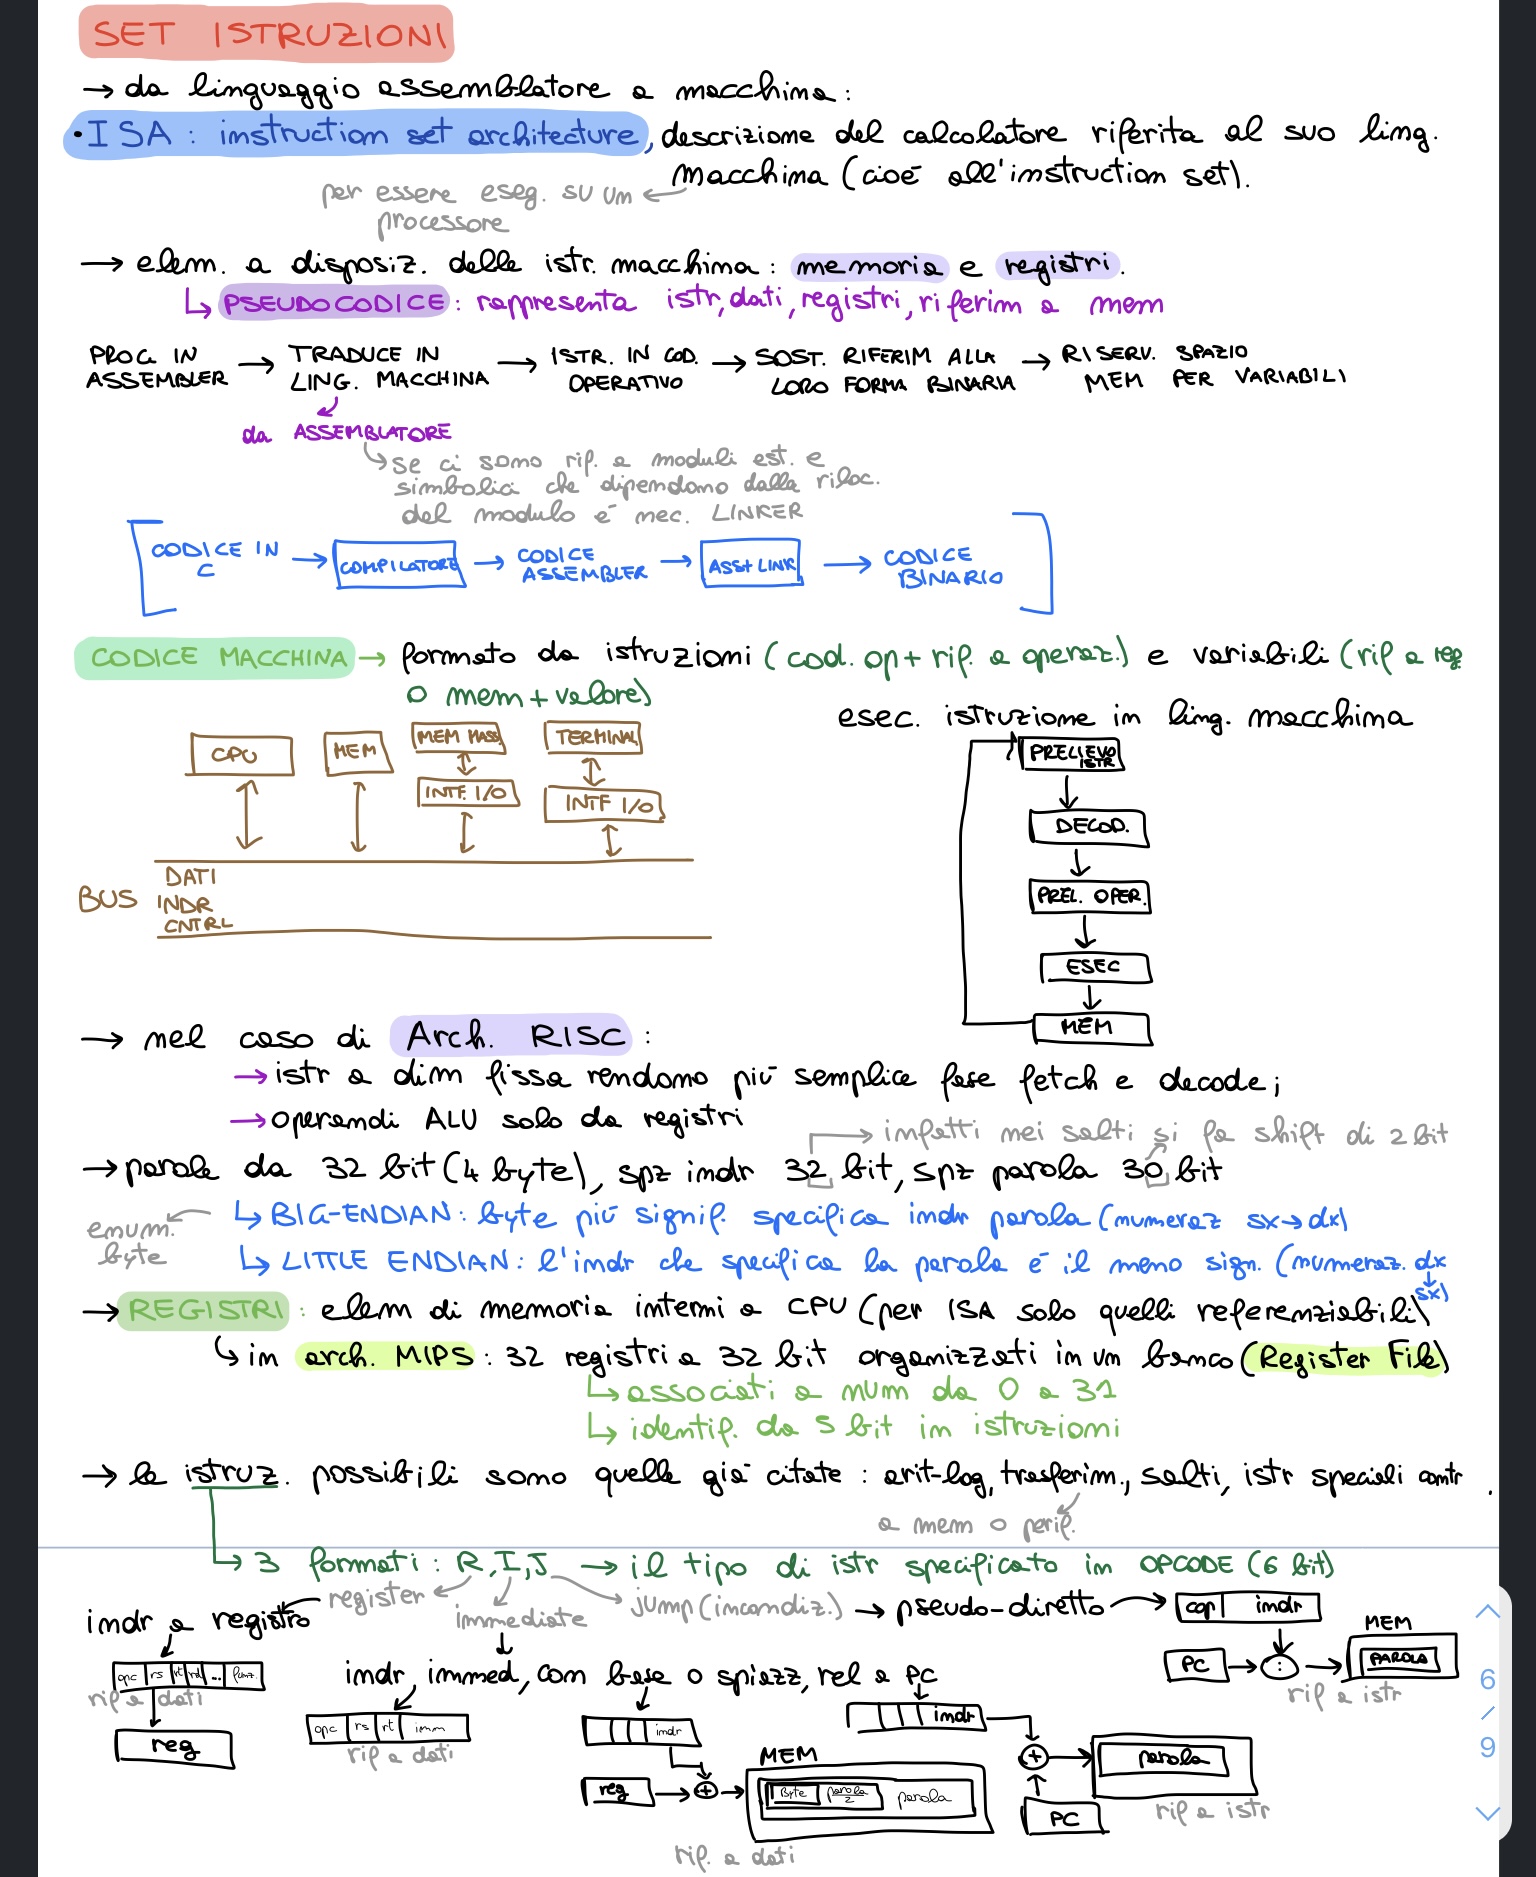 SET ISTRUZIONI
→ da linguaggio assemblatore a macchina:
• ISA: instruction set architecture, descrizione del calcolatore riferita al suo ling.
macchina (cioè all'instruction set).
per essere eseg. su un
processore
→ elem. a disposiz. delle istr. macchina: memoria e registri.
↳ PSEUDOCODICE: rappresenta istr, dati, registri, riferim a mem
PROG IN → TRADUCE IN → ISTR. IN COD. → SOST. RIFERIM ALLA → RISERV. SPAZIO
ASSEMBLER LING. MACCHINA OPERATIVO LORO FORMA BINARIA MEM PER VARIABILI
da ASSEMBLATORE
↳ se ci sono rif. a moduli est. e
simbolici che dipendono dalla riloc.
del modulo è nec. LINKER
CODICE IN C → COMPILATORE → CODICE ASSEMBLER → ASS+LINK → CODICE BINARIO
CODICE MACCHINA → formato da istruzioni (cod. op + rif. a operaz.) e variabili (rif a reg.
o mem + valore)
esec. istruzione in ling. macchina
CPU MEM MEM MASS. TERMINAL
INTF. I/O INTF I/O
BUS
DATI
INDR
CNTRL
PRELIEVO ISTR
DECOD.
PREL. OPER.
ESEC
MEM
→ nel caso di Arch. RISC:
→ istr a dim fissa rendono più semplice fase fetch e decode;
→ operandi ALU solo da registri
→ infatti nei salti si fa shift di 2 bit
→ parole da 32 bit (4 byte), spz indr 32 bit, spz parola 30 bit
enum.
byte
↳ BIG-ENDIAN: byte più signif. specifica indr parola (numeraz sx→dx)
↳ LITTLE ENDIAN: l'indr che specifica la parola è il meno sign. (numeraz. dx
↓
sx)
→ REGISTRI: elem di memoria interni a CPU (per ISA solo quelli referenziabili)
↳ in arch. MIPS: 32 registri a 32 bit organizzati in un banco (Register File)
↳ associati a num da 0 a 31
↳ identif. da 5 bit in istruzioni
→ le istruz. possibili sono quelle già citate: arit-log, trasferim., salti, istr speciali contr.
a mem o perif.
↳ 3 formati: R, I, J → il tipo di istr specificato in OPCODE (6 bit)
register
immediate
jump (incondiz.) → pseudo-diretto → cop indr
indr a registro
opc rs rt rd ... funz.
rif a dati
reg
indr immed, con base o spiazz, rel a PC
opc rs rt imm
rif a dati
indr
reg + 
MEM
Byte parola/2 parola
rif. a dati
indr
+
PC
parola
rif a istr
PC :
MEM
PAROLA
rif a istr
6
/
9